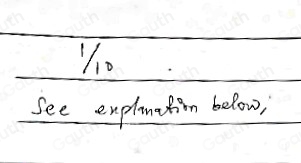 1/10
See explanation below,